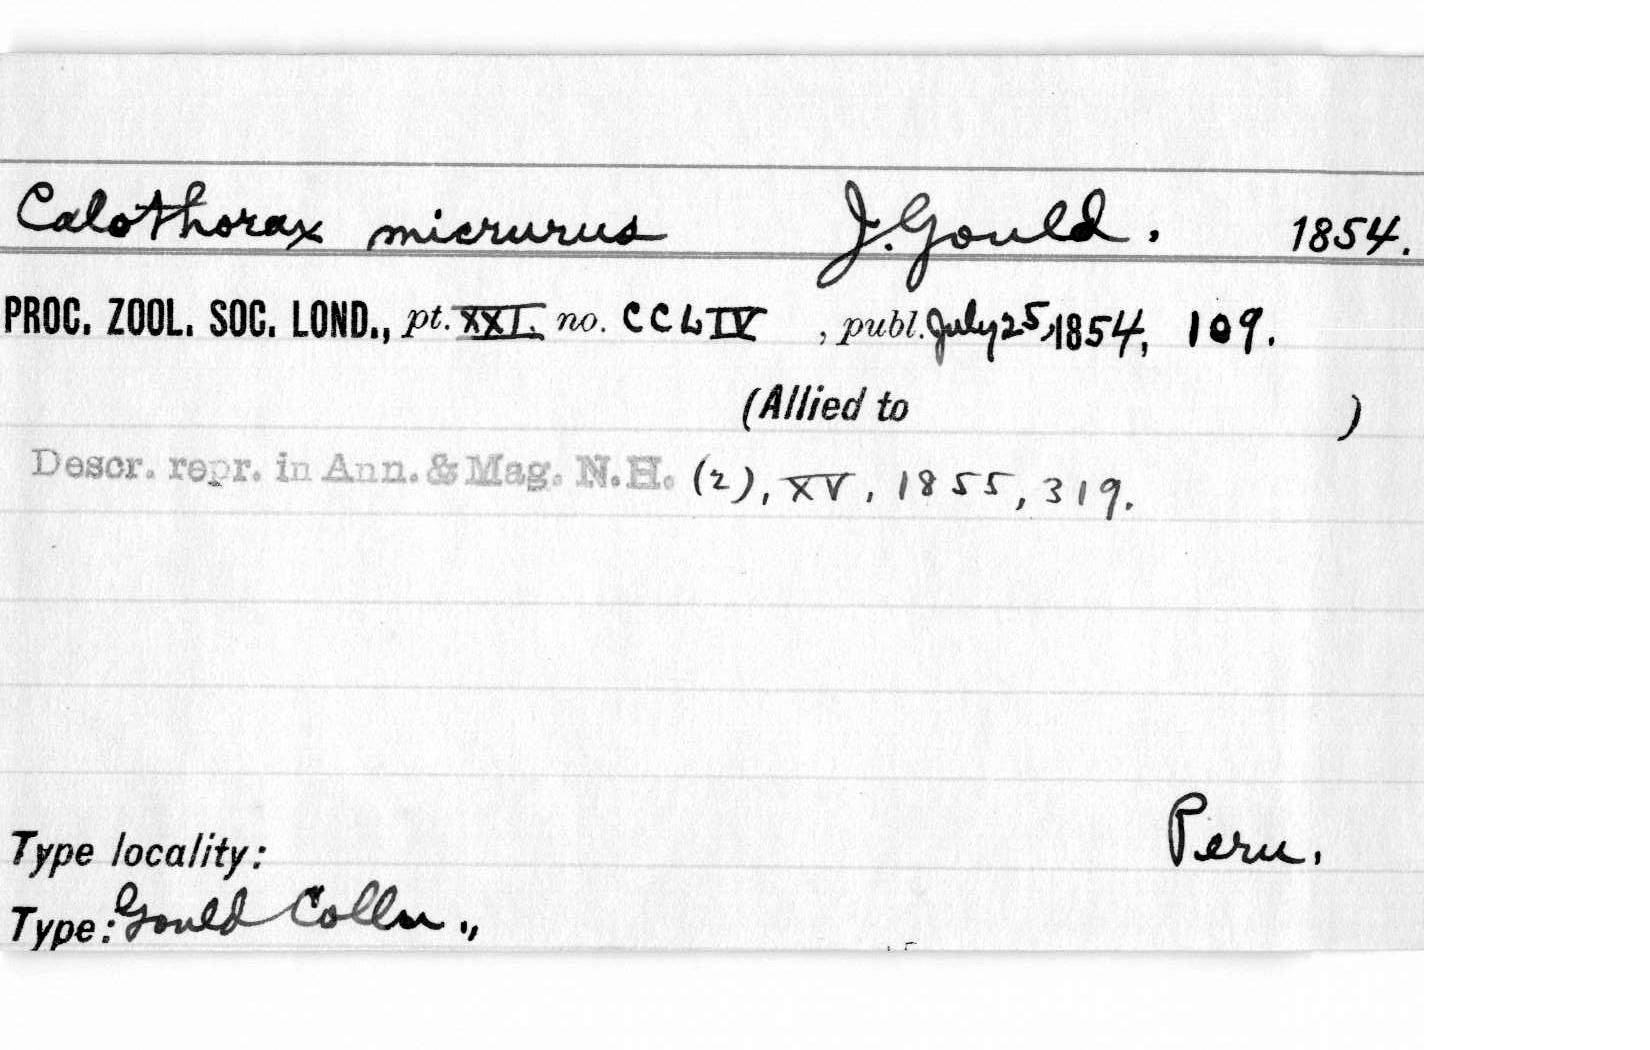 Calothorax micrurus J. Gould. 1854.
PROC. ZOOL. SOC. LOND., pt. XXI. no. CCLIV , publ. July 25, 1854, 109.
(Allied to )
Descr. repr. in Ann. & Mag. N.H. (2), XV, 1855, 319.
Type locality: Peru.
Type: Gould Colln.,